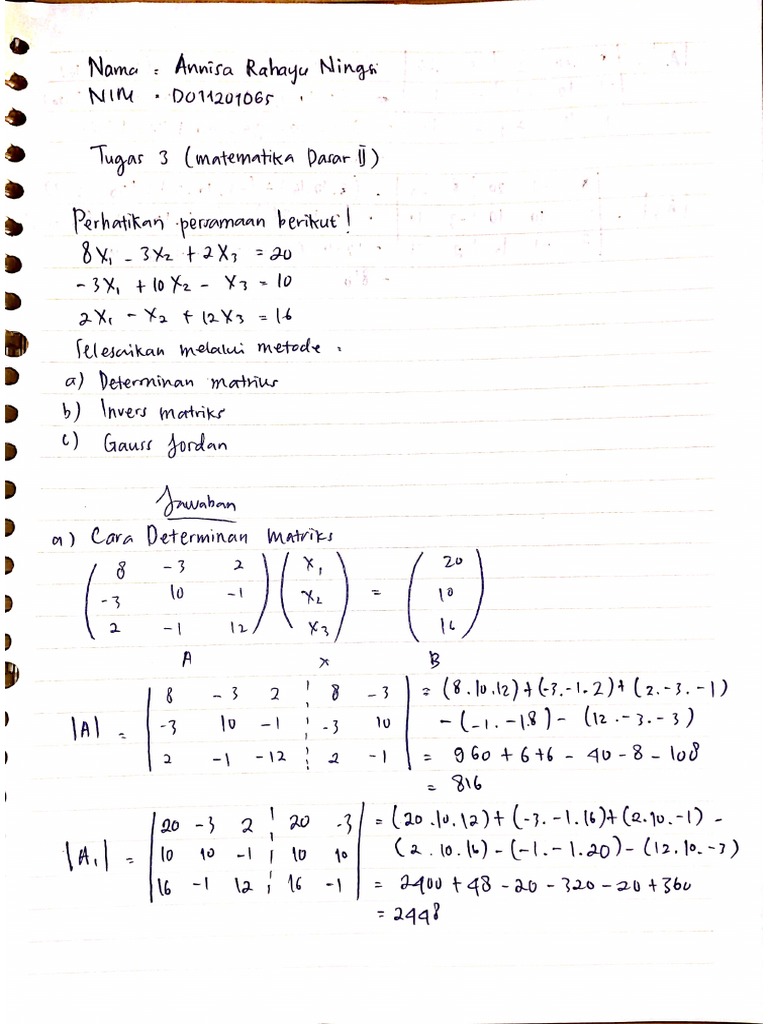 Nama : Annisa Rahayu Ningsi
NIM : D011201065
Tugas 3 (matematika Dasar II)
Perhatikan persamaan berikut!
8X₁ - 3X₂ + 2X₃ = 20
-3X₁ + 10X₂ - X₃ = 10
2X₁ - X₂ + 12X₃ = 16
Selesaikan melalui metode :
a) Determinan matriks
b) Invers matriks
c) Gauss Jordan
Jawaban
a) Cara Determinan Matriks
( 8 -3 2 ) ( X₁ ) = ( 20 )
( -3 10 -1 ) ( X₂ ) = ( 10 )
( 2 -1 12 ) ( X₃ ) = ( 16 )
A x B
| 8 -3 2 ¦ 8 -3 | = (8.10.12) + (-3.-1.2) + (2.-3.-1)
|A| = | -3 10 -1 ¦ -3 10 | - (-1.-1.8) - (12.-3.-3)
| 2 -1 -12 ¦ 2 -1 | = 960 + 6 + 6 - 40 - 8 - 108
= 816
| 20 -3 2 ¦ 20 -3 | = (20.10.12) + (-3.-1.16) + (2.10.-1) -
|A₁| = | 10 10 -1 ¦ 10 10 | (2.10.16) - (-1.-1.20) - (12.10.-3)
| 16 -1 12 ¦ 16 -1 | = 2400 + 48 - 20 - 320 - 20 + 360
= 2448